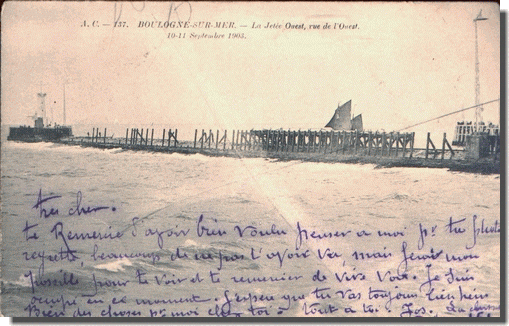 A. C. — 137. BOULOGNE-SUR-MER. — La Jetée Ouest, vue de l'Ouest.
10-11 Septembre 1903.
très cher.
te Remercie d'avoir bien voulu penser a moi pr tu
regrette beaucoup de ne pas t'avoir vu, mais ferai mon
possible pour te voir et te remercier de vive voix. Je suis
occupé en ce moment. J'espère que tu vas toujours bien
Bien des choses pr moi chez toi. tout a toi.